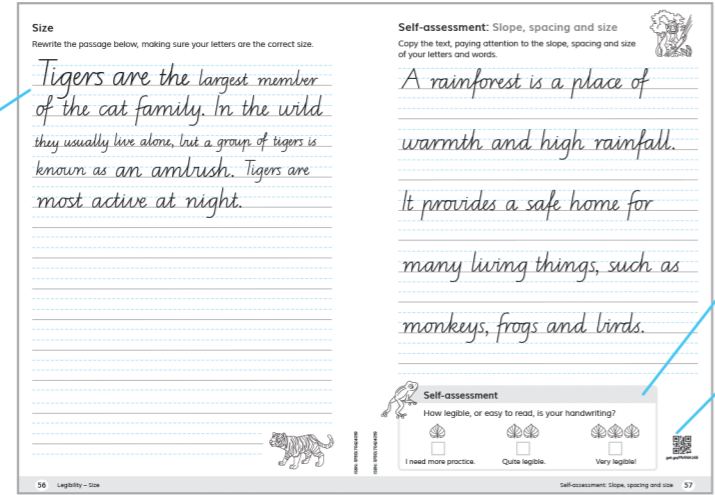 Size
Rewrite the passage below, making sure your letters are the correct size.
Tigers are the largest member
of the cat family. In the wild
they usually live alone, but a group of tigers is
known as an ambush. Tigers are
most active at night.
56 Legibility – Size
Self-assessment: Slope, spacing and size
Copy the text, paying attention to the slope, spacing and size
of your letters and words.
A rainforest is a place of
warmth and high rainfall.
It provides a safe home for
many living things, such as
monkeys, frogs and birds.
Self-assessment
How legible, or easy to read, is your handwriting?
I need more practice. Quite legible. Very legible!
Self-assessment: Slope, spacing and size 57